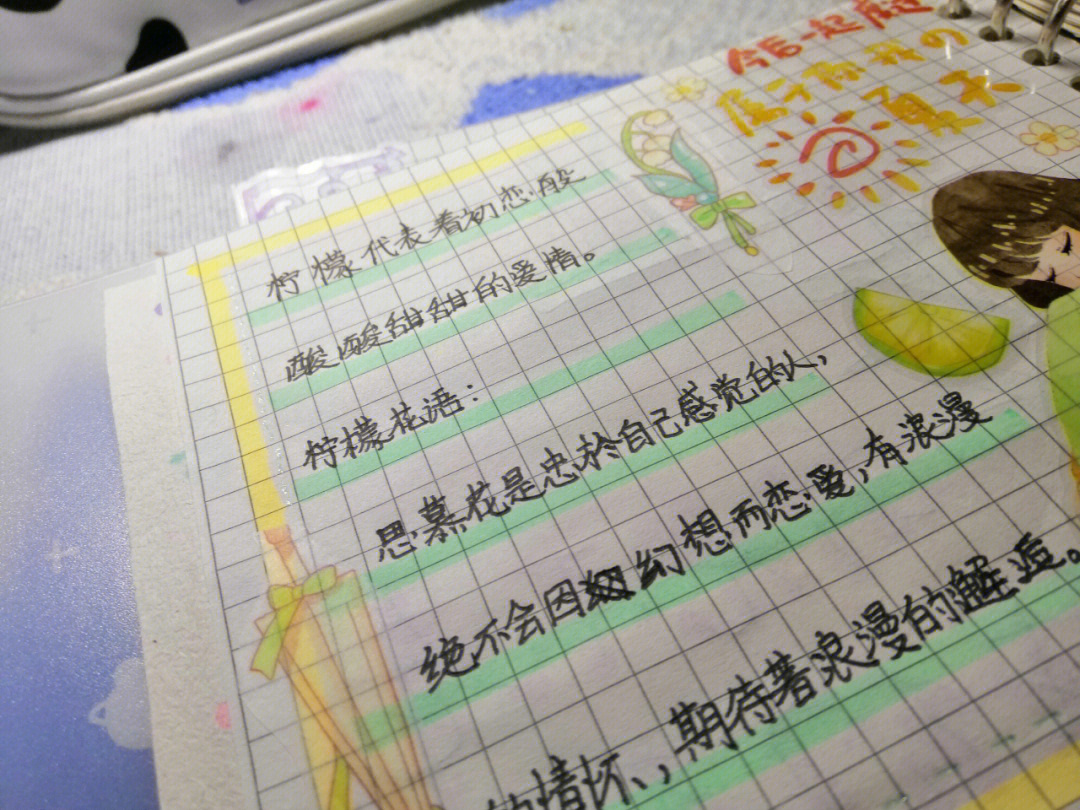 今后一起度过
属于你我の
夏天
柠檬代表着初恋般
酸酸甜甜的爱情。
柠檬花语：
思慕花是忠於自己感觉的人，
绝不会因幻想而恋爱，有浪漫
的情怀、，期待著浪漫的邂逅。